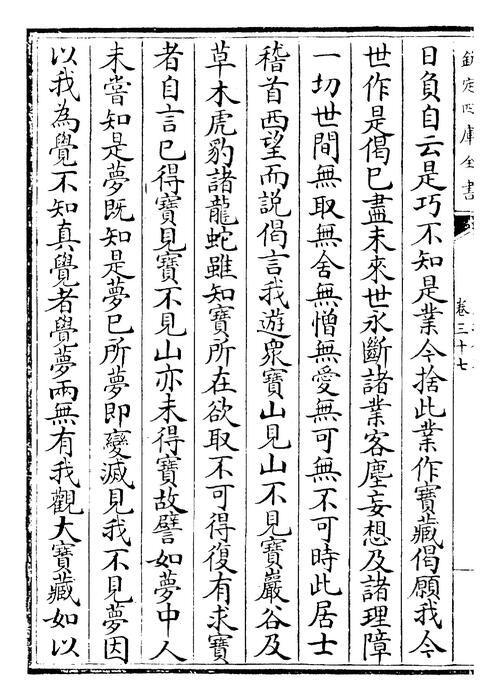 欽定四庫全書
卷三十七
日負自云是巧不知是業今捨此業作寶藏偈願我今
世作是偈已盡未來世永斷諸業客塵妄想及諸理障
一切世間無取無舍無憎無愛無可無不可時此居士
稽首西望而說偈言我遊衆寶山見山不見寶巖谷及
草木虎豹諸龍蛇雖知寶所在欲取不可得復有求寶
者自言已得寶見寶不見山亦未得寶故譬如夢中人
未嘗知是夢既知是夢已所夢即變滅見我不見夢因
以我為覺不知真覺者覺夢兩無有我觀大寶藏如以